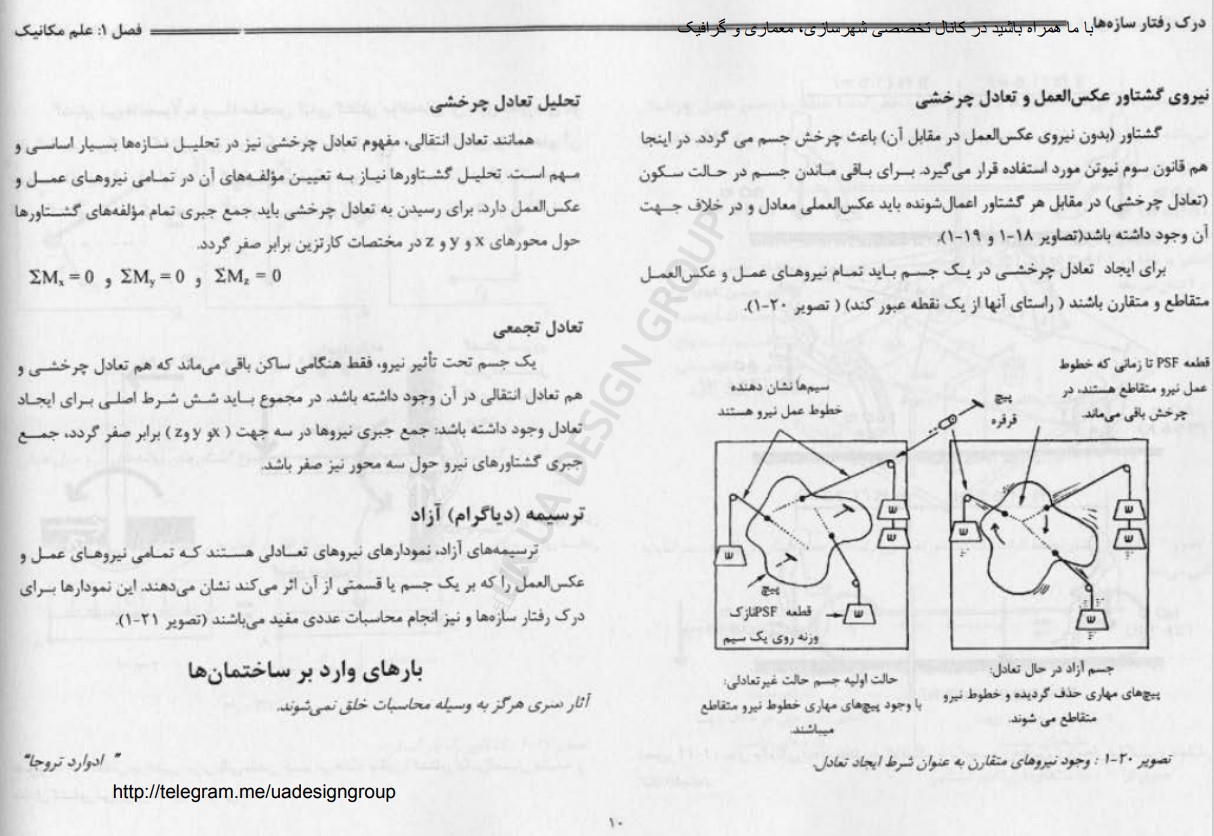 درک رفتار سازه‌ها
با ما همراه باشید در کانال تخصصی شهرسازی، معماری و گرافیک
فصل ۱: علم مکانیک
نیروی گشتاور عکس‌العمل و تعادل چرخشی
گشتاور (بدون نیروی عکس‌العمل در مقابل آن) باعث چرخش جسم می گردد. در اینجا
هم قانون سوم نیوتن مورد استفاده قرار می‌گیرد. بـرای بـاقی مـاندن جسـم در حـالت سـکون
(تعادل چرخشی) در مقابل هر گشتاور اعمال‌شونده باید عکس‌العملی معادل و در خلاف جـهت
آن وجود داشته باشد(تصاویر ۱۸-۱ و ۱۹-۱).
برای ایجاد تعادل چرخشـی در یـک جسـم بـاید تمـام نیروهـای عمـل و عکـس‌العمـل
متقاطع و متقارن باشند ( راستای آنها از یک نقطه عبور کند) ( تصویر ۲۰-۱).
قطعه PSF تا زمانی که خطوط
عمل نیرو متقاطع هستند، در
چرخش باقی می‌ماند.
پیچ
قرقره
سیم‌ها نشان دهنده
خطوط عمل نیرو هستند
W
W
W
W
W
W
W
W
پیچ
قطعه PSFنازک
وزنه روی یک سیم
جسم آزاد در حال تعادل:
پیچ‌های مهاری حذف گردیده و خطوط نیرو
متقاطع می شوند.
حالت اولیه جسم حالت غیرتعادلی:
با وجود پیچ‌های مهاری خطوط نیرو متقاطع
میباشند.
تصویر ۲۰-۱ : وجود نیروهای متقارن به عنوان شرط ایجاد تعادل.
تحلیل تعادل چرخشی
همانند تعادل انتقالی، مفهوم تعادل چرخشی نیز در تحلیـل سـازه‌ها بسـیار اساسـی و
مـهم اسـت. تحلیـل گشـتاورها نیـاز بـه تعییـن مؤلفـه‌های آن در تمـامی نیروهـای عمـل و
عکس‌العمل دارد. برای رسیدن به تعادل چرخشی باید جمع جبری تمام مؤلفه‌های گشـتاورها
حول محورهای x و y و z در مختصات کارتزین برابر صفر گردد.
ΣMx = 0 و ΣMy = 0 و ΣMz = 0
تعادل تجمعی
یک جسم تحت تأثیر نیرو، فقط هنگامی ساکن باقی می‌ماند که هم تعادل چرخشـی و
هم تعادل انتقالی در آن وجود داشته باشد. در مجموع بـاید شـش شـرط اصلـی بـرای ایجـاد
تعادل وجود داشته باشد: جمع جبری نیروها در سه جهت ( xو y وz ) برابر صفر گردد، جمـع
جبری گشتاورهای نیرو حول سه محور نیز صفر باشد.
ترسیمه (دیاگرام) آزاد
ترسیمه‌های آزاد، نمودارهای نیروهای تعـادلی هسـتند کـه تمـامی نیروهـای عمـل و
عکس‌العمل را که بر یک جسم یا قسمتی از آن اثر می‌کند نشان می‌دهند. این نمودارها بـرای
درک رفتار سازه‌ها و نیز انجام محاسبات عددی مفید می‌باشند (تصویر ۲۱-۱).
بارهای وارد بر ساختمان‌ها
آثار هنری هرگز به وسیله محاسبات خلق نمی‌شوند.
" ادوارد تروجا"
http://telegram.me/uadesigngroup
UA DESIGN GROUP
۱۰